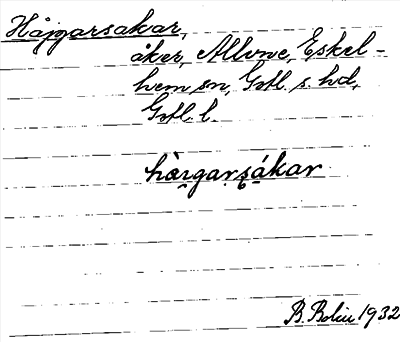 Hàrgarsakar,
åker, Allvne, Eskel-
hem sn, Gotl. s. hd,
Gotl. l.
hàrgarṣákar
B. Bolin 1932